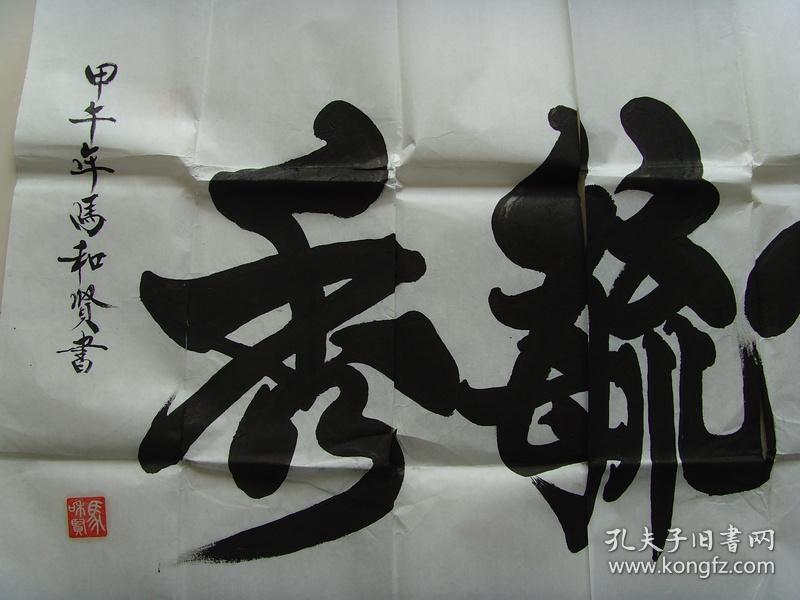 毓
秀
甲午年馬和贤書
馬和賢
孔夫子旧书网
www.kongfz.com